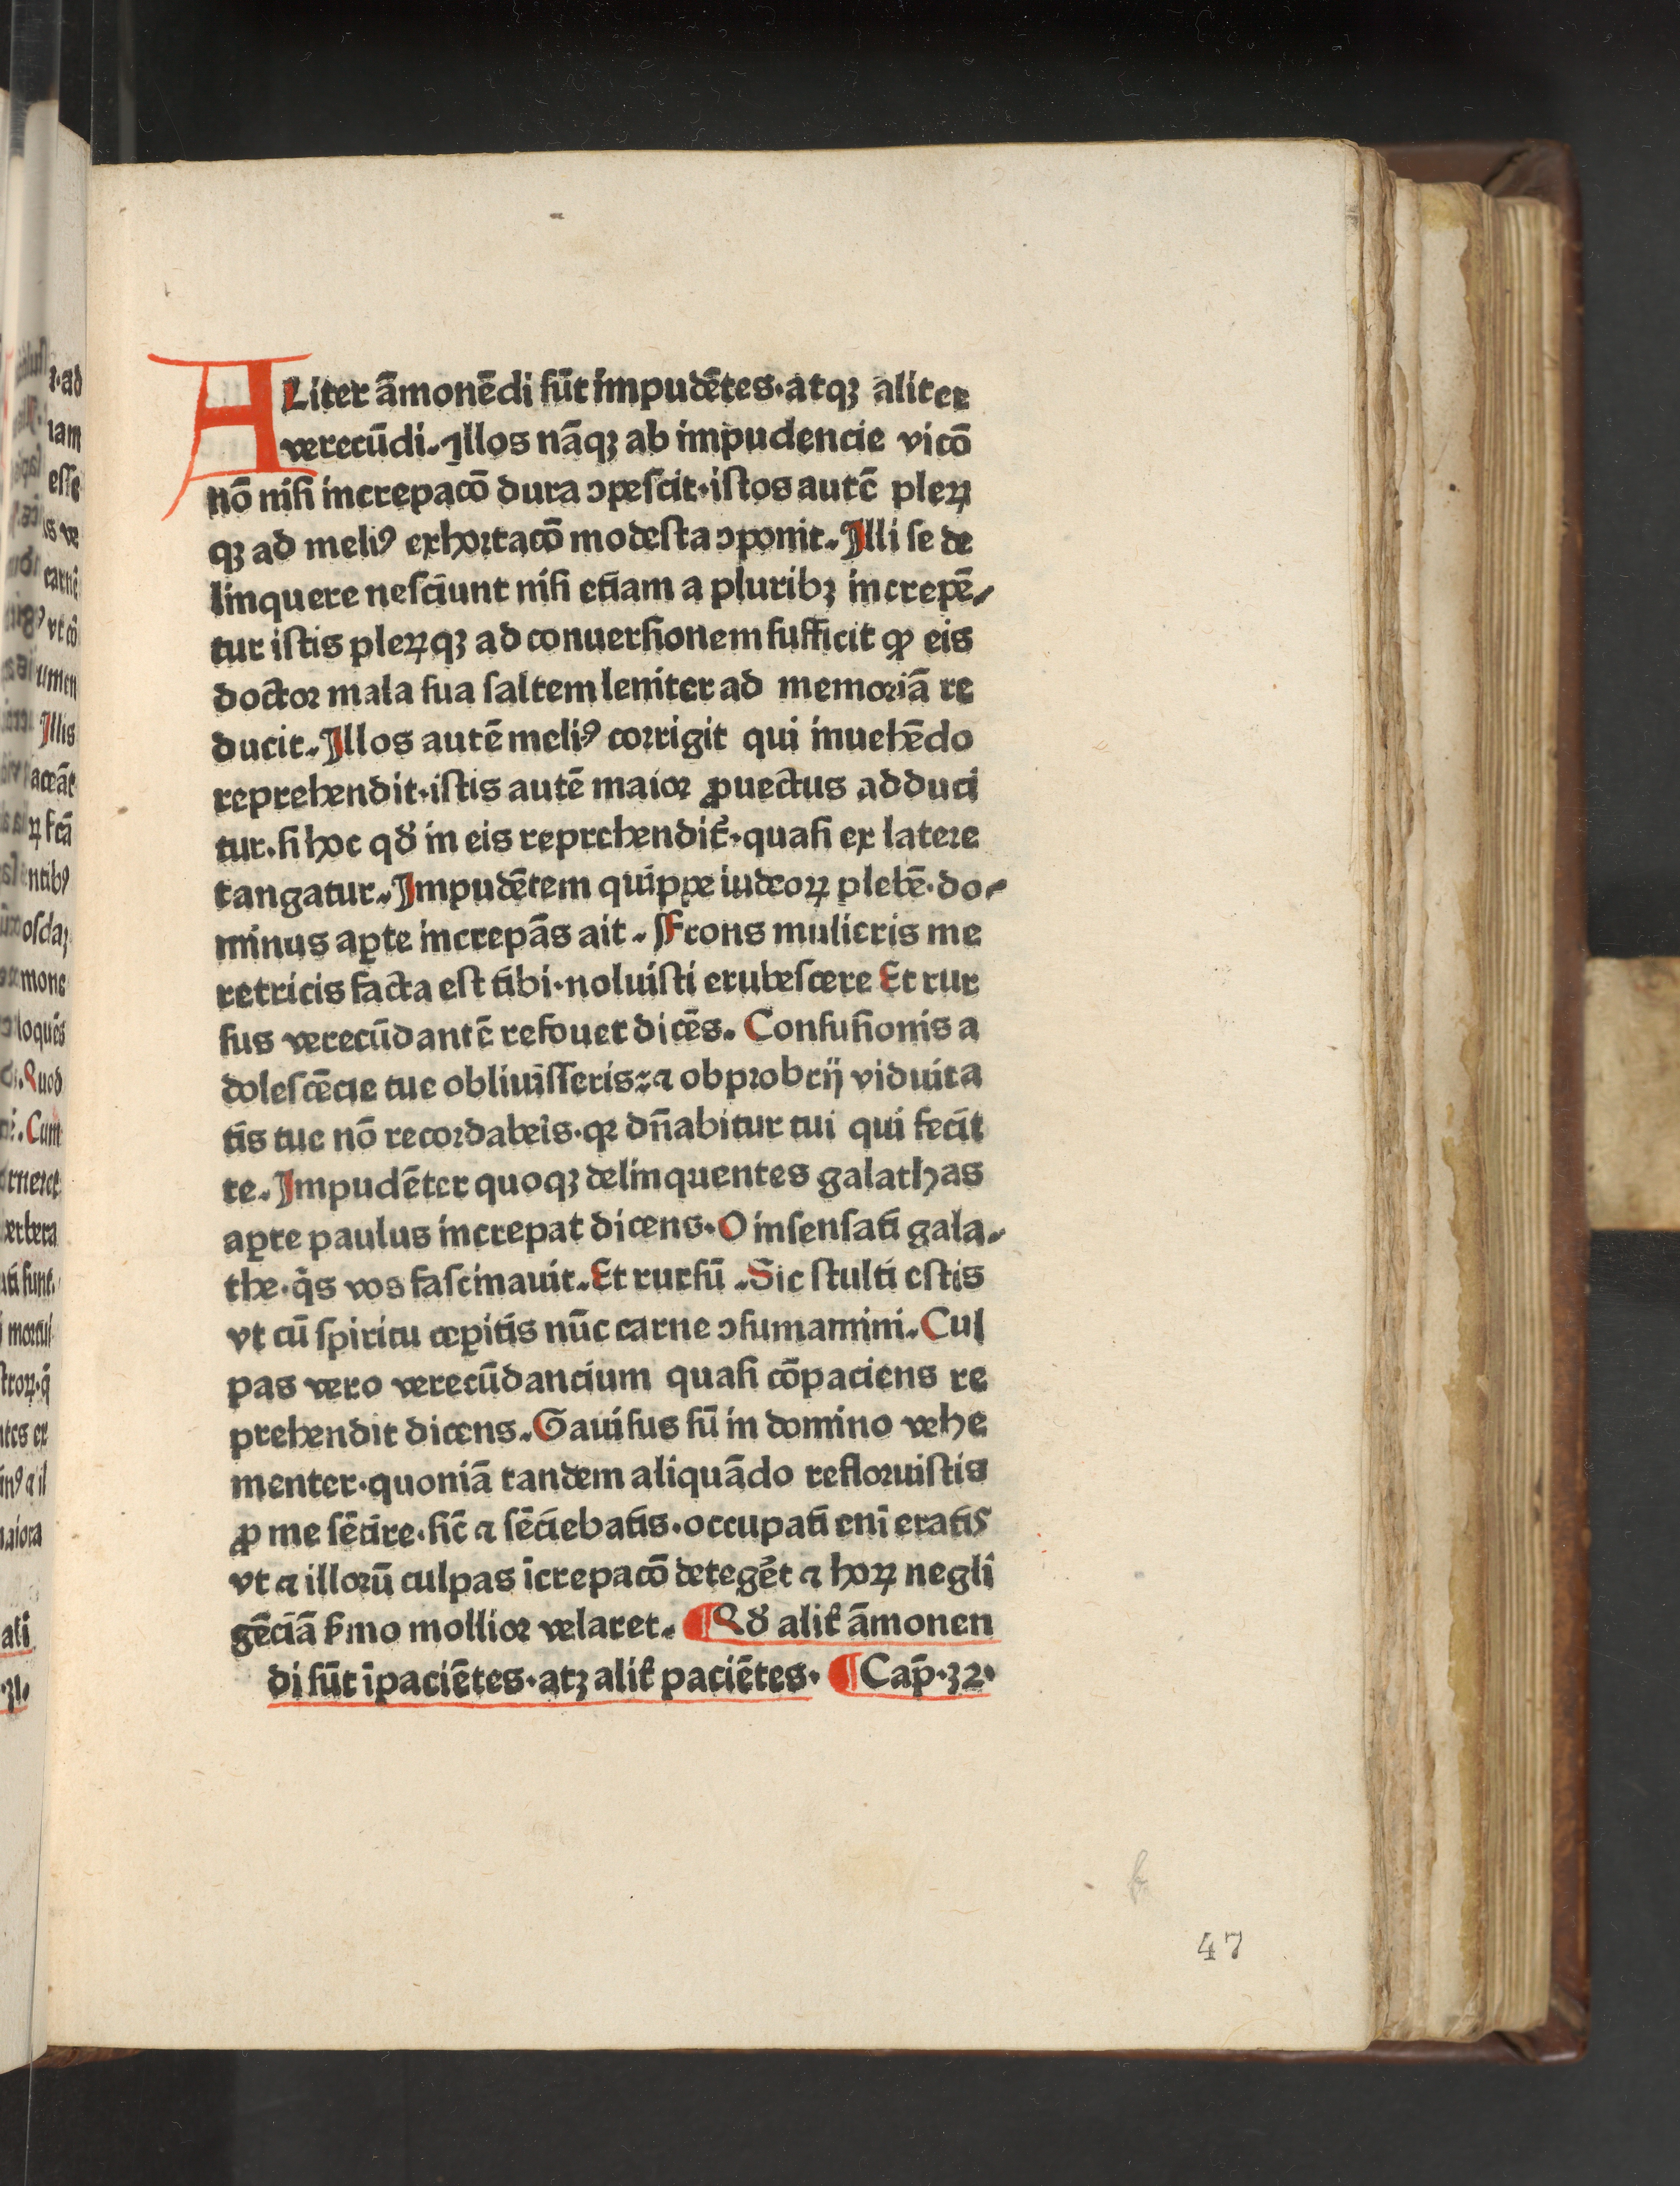 ALiter āmonēdi sūt impudētes·atqꝫ aliter
verecūdi. Illos nāqꝫ ab impudencie vicō
nō nisi increpacō dura ↄpescit·istos autē pleꝝ
qꝫ ad meliꝰ exhortacō modesta ↄponit. Illi se de
linquere nesciunt nisi etiam a pluribꝫ increpē⸗
tur istis pleꝝqꝫ ad conuersionem sufficit ꝙ eis
doctor mala sua saltem leniter ad memoriā re
ducit. Illos autē meliꝰ corrigit qui inuehēdo
reprehendit·istis autē maior ꝓuectus adduci
tur. si hoc qd̕ in eis reprehendit̕·quasi ex latere
tangatur. Impudētem quippe iudeoꝝ plebē·do⸗
minus aꝑte increpās ait. Frons mulieris me
retricis facta est tibi·noluisti erubescere Et rur
sus verecūdantē refouet dicēs. Confusionis a
dolescēcie tue obliuisseris: ⁊ obprobrij viduita
tis tue nō recordabeis·qꝛ dn̄abitur tui qui fecit
te. Impudēter quoqꝫ delinquentes galathas
aꝑte paulus increpat dicens. O insensati gala⸗
the·q̄s vos fascinauit. Et rursū. Sic stulti estis
vt cū spiritu ceꝑitis nūc carne ↄsumamini. Cul
pas vero verecūdancium quasi cōpaciens re
prehendit dicens. Gauisus sū in domino vehe
menter·quoniā tandem aliquādo refloruistis
ꝓ me sētire·sic̄ ⁊ sēciebatis·occupati eni eratis
vt ⁊ illorū culpas īcrepacō detegēt ⁊ hoꝝ negli
gēciā s̕mo mollior velaret. ¶Qd̕ alit̕ āmonen
di sūt īpaciētes·atꝫ alit̕ paciētes· ¶Cap̄·32·
47